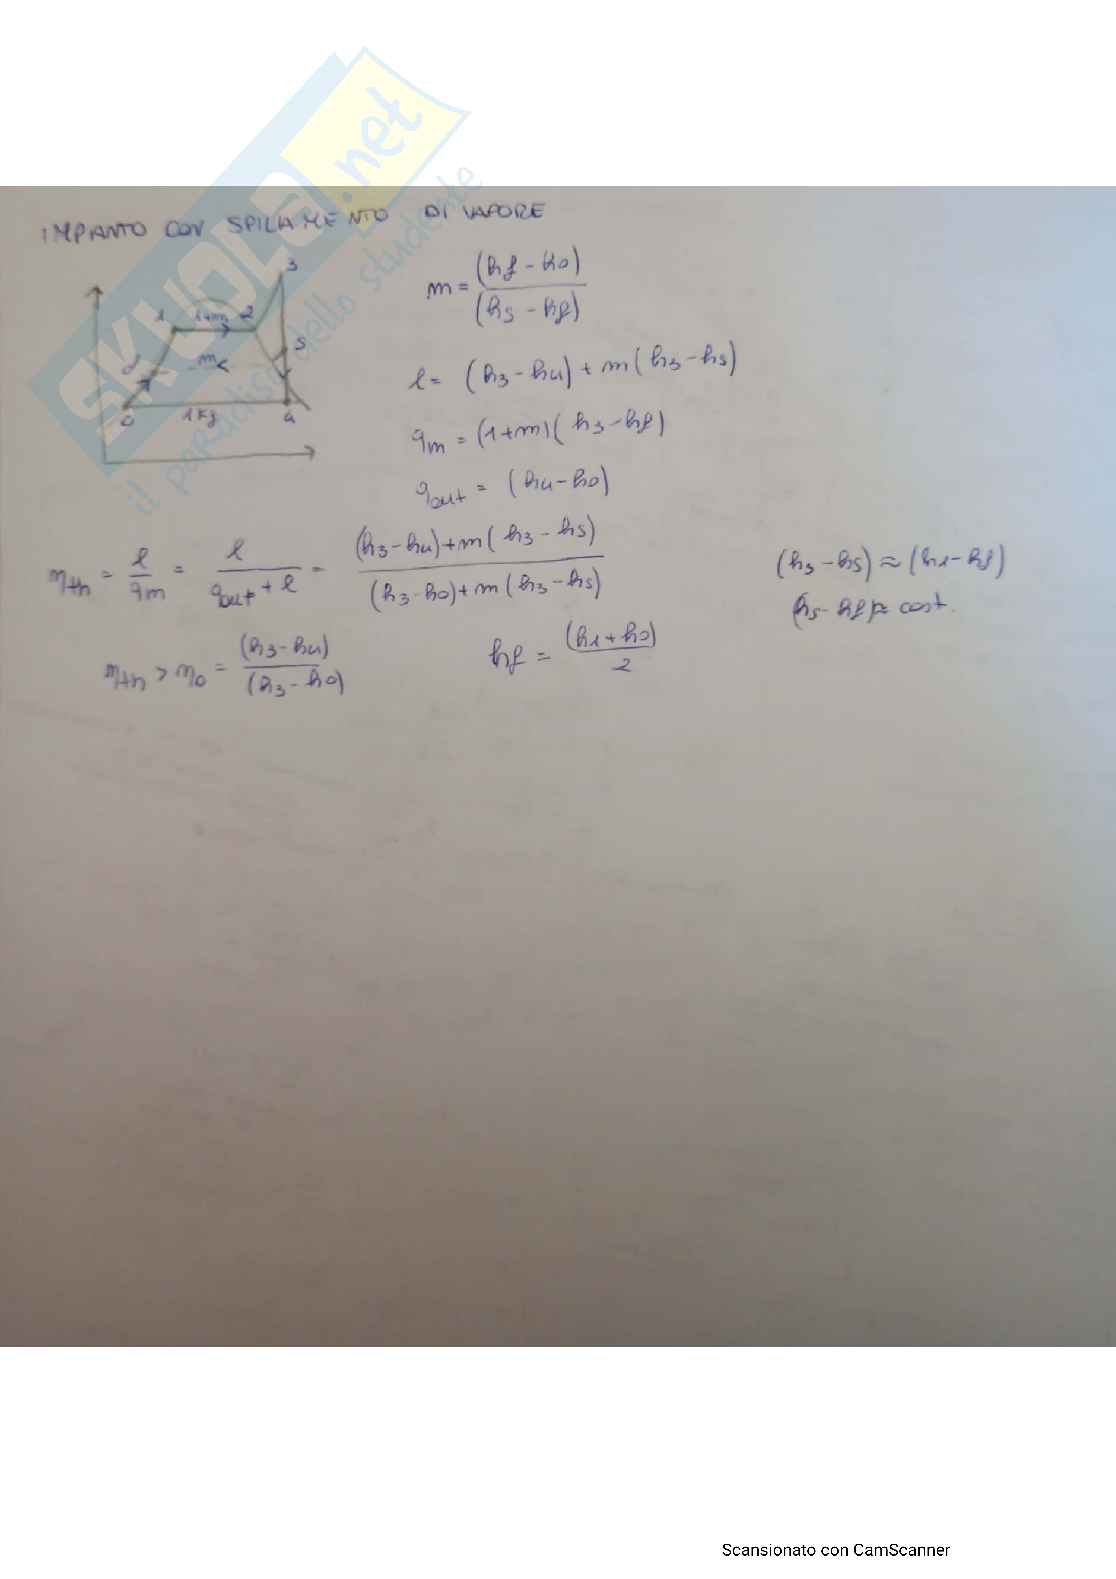 SKUOLA.net
il paradiso dello studente
IMPIANTO CON SPILLAMENTO DI VAPORE
m = (hf - h0) / (hs - hf)
3
1
1+m
2
s
f
m
0
1 kg
4
l = (h3 - h4) + m (h3 - hs)
qin = (1+m) (h3 - hf)
qout = (h4 - h0)
ηth = l / qin = l / (qout + l) = ((h3 - h4) + m (h3 - hs)) / ((h3 - h0) + m (h3 - hs))
(h3 - hs) ≈ (h1 - hf)
(hs - hf) ≈ cost.
ηth > η0 = (h3 - h4) / (h3 - h0)
hf = (h1 + h0) / 2
Scansionato con CamScanner